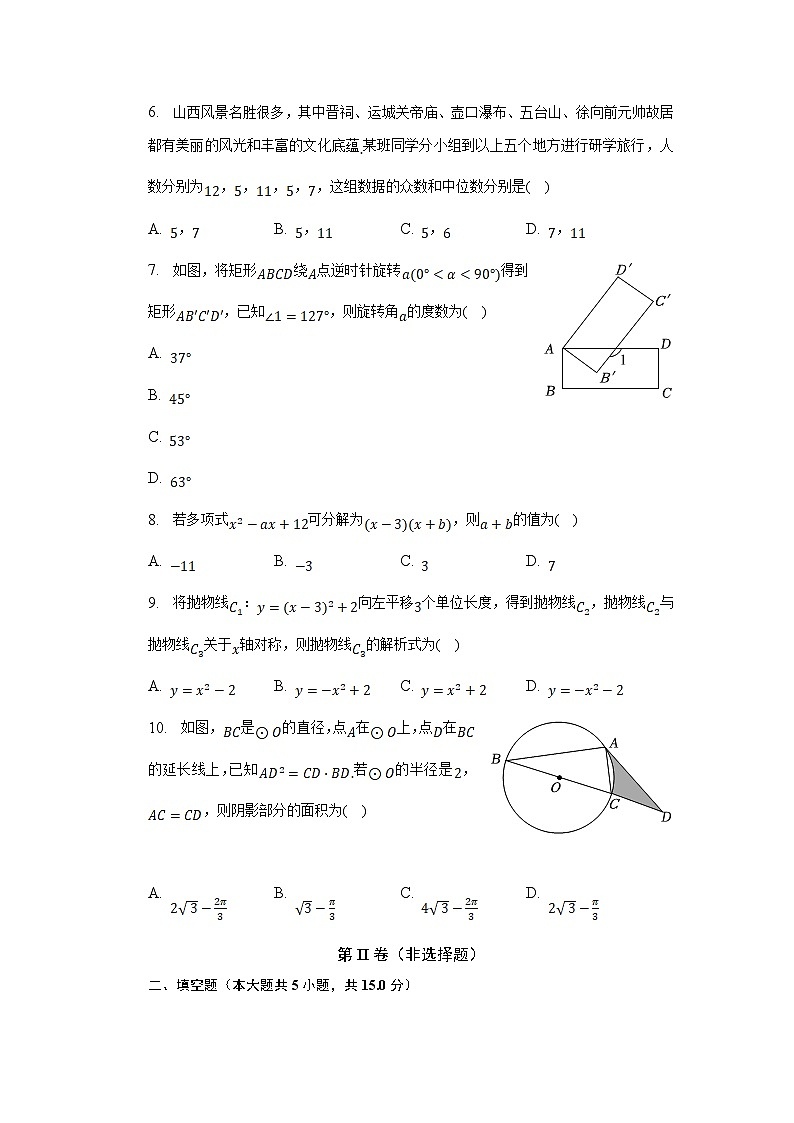 6. 山西风景名胜很多，其中晋祠、运城关帝庙、壶口瀑布、五台山、徐向前元帅故居
都有美丽的风光和丰富的文化底蕴.某班同学分小组到以上五个地方进行研学旅行，人
数分别为12，5，11，5，7，这组数据的众数和中位数分别是( )
A. 5，7 B. 5，11 C. 5，6 D. 7，11
7. 如图，将矩形ABCD绕A点逆时针旋转a(0°<α<90°)得到
矩形AB′C′D′，已知∠1=127°，则旋转角a的度数为( )
A. 37°
B. 45°
C. 53°
D. 63°
D′
C′
A
D
1
B′
B
C
8. 若多项式x²−ax+12可分解为(x−3)(x+b)，则a+b的值为( )
A. −11 B. −3 C. 3 D. 7
9. 将抛物线C₁：y=(x−3)²+2向左平移3个单位长度，得到抛物线C₂，抛物线C₂与
抛物线C₃关于x轴对称，则抛物线C₃的解析式为( )
A. y=x²−2 B. y=−x²+2 C. y=x²+2 D. y=−x²−2
10. 如图，BC是⊙O的直径，点A在⊙O上，点D在BC
的延长线上，已知AD²=CD·BD.若⊙O的半径是2，
AC=CD，则阴影部分的面积为( )
A
B
O
C
D
A. 2√3−2π/3 B. √3−π/3 C. 4√3−2π/3 D. 2√3−π/3
第II卷（非选择题）
二、填空题（本大题共5小题，共15.0分）